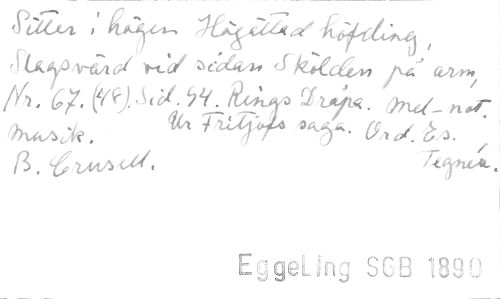 Sitter i högen Högättad höfding,
Slagsvärd vid sidan Skölden på arm,
Nr. 67. (48). Sid. 94. Rings Drápa. Mel-not.
musik. Ur Fritjofs saga. Ord. Es.
B. Crusell. Tegnér.
EggeLing SGB 1890